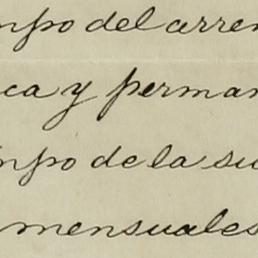 mpo del arren
ca y perman
mpo de la su
mensuales